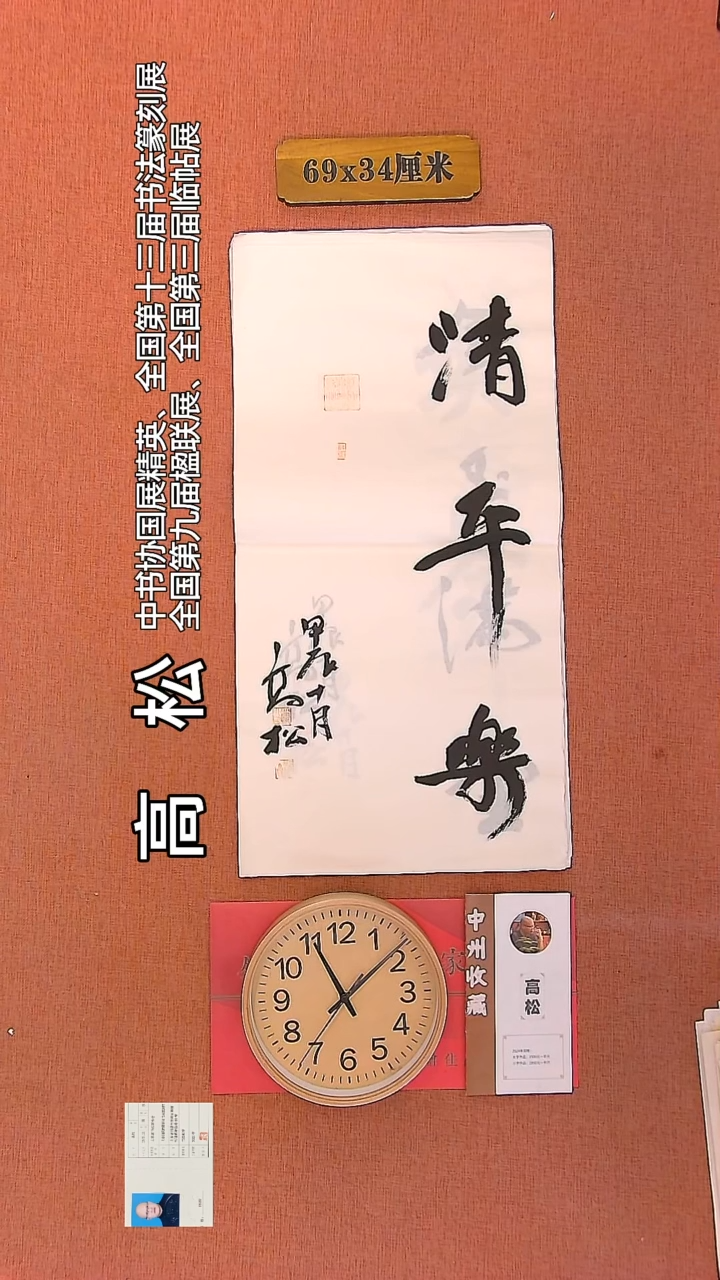 69x34厘米
清平樂
甲辰十月
高松
高 松
中书协国展精英、全国第十三届书法篆刻展
全国第九届楹联展、全国第三届临帖展
12
1
2
3
4
5
6
7
8
9
10
11
家
中州收藏
高松